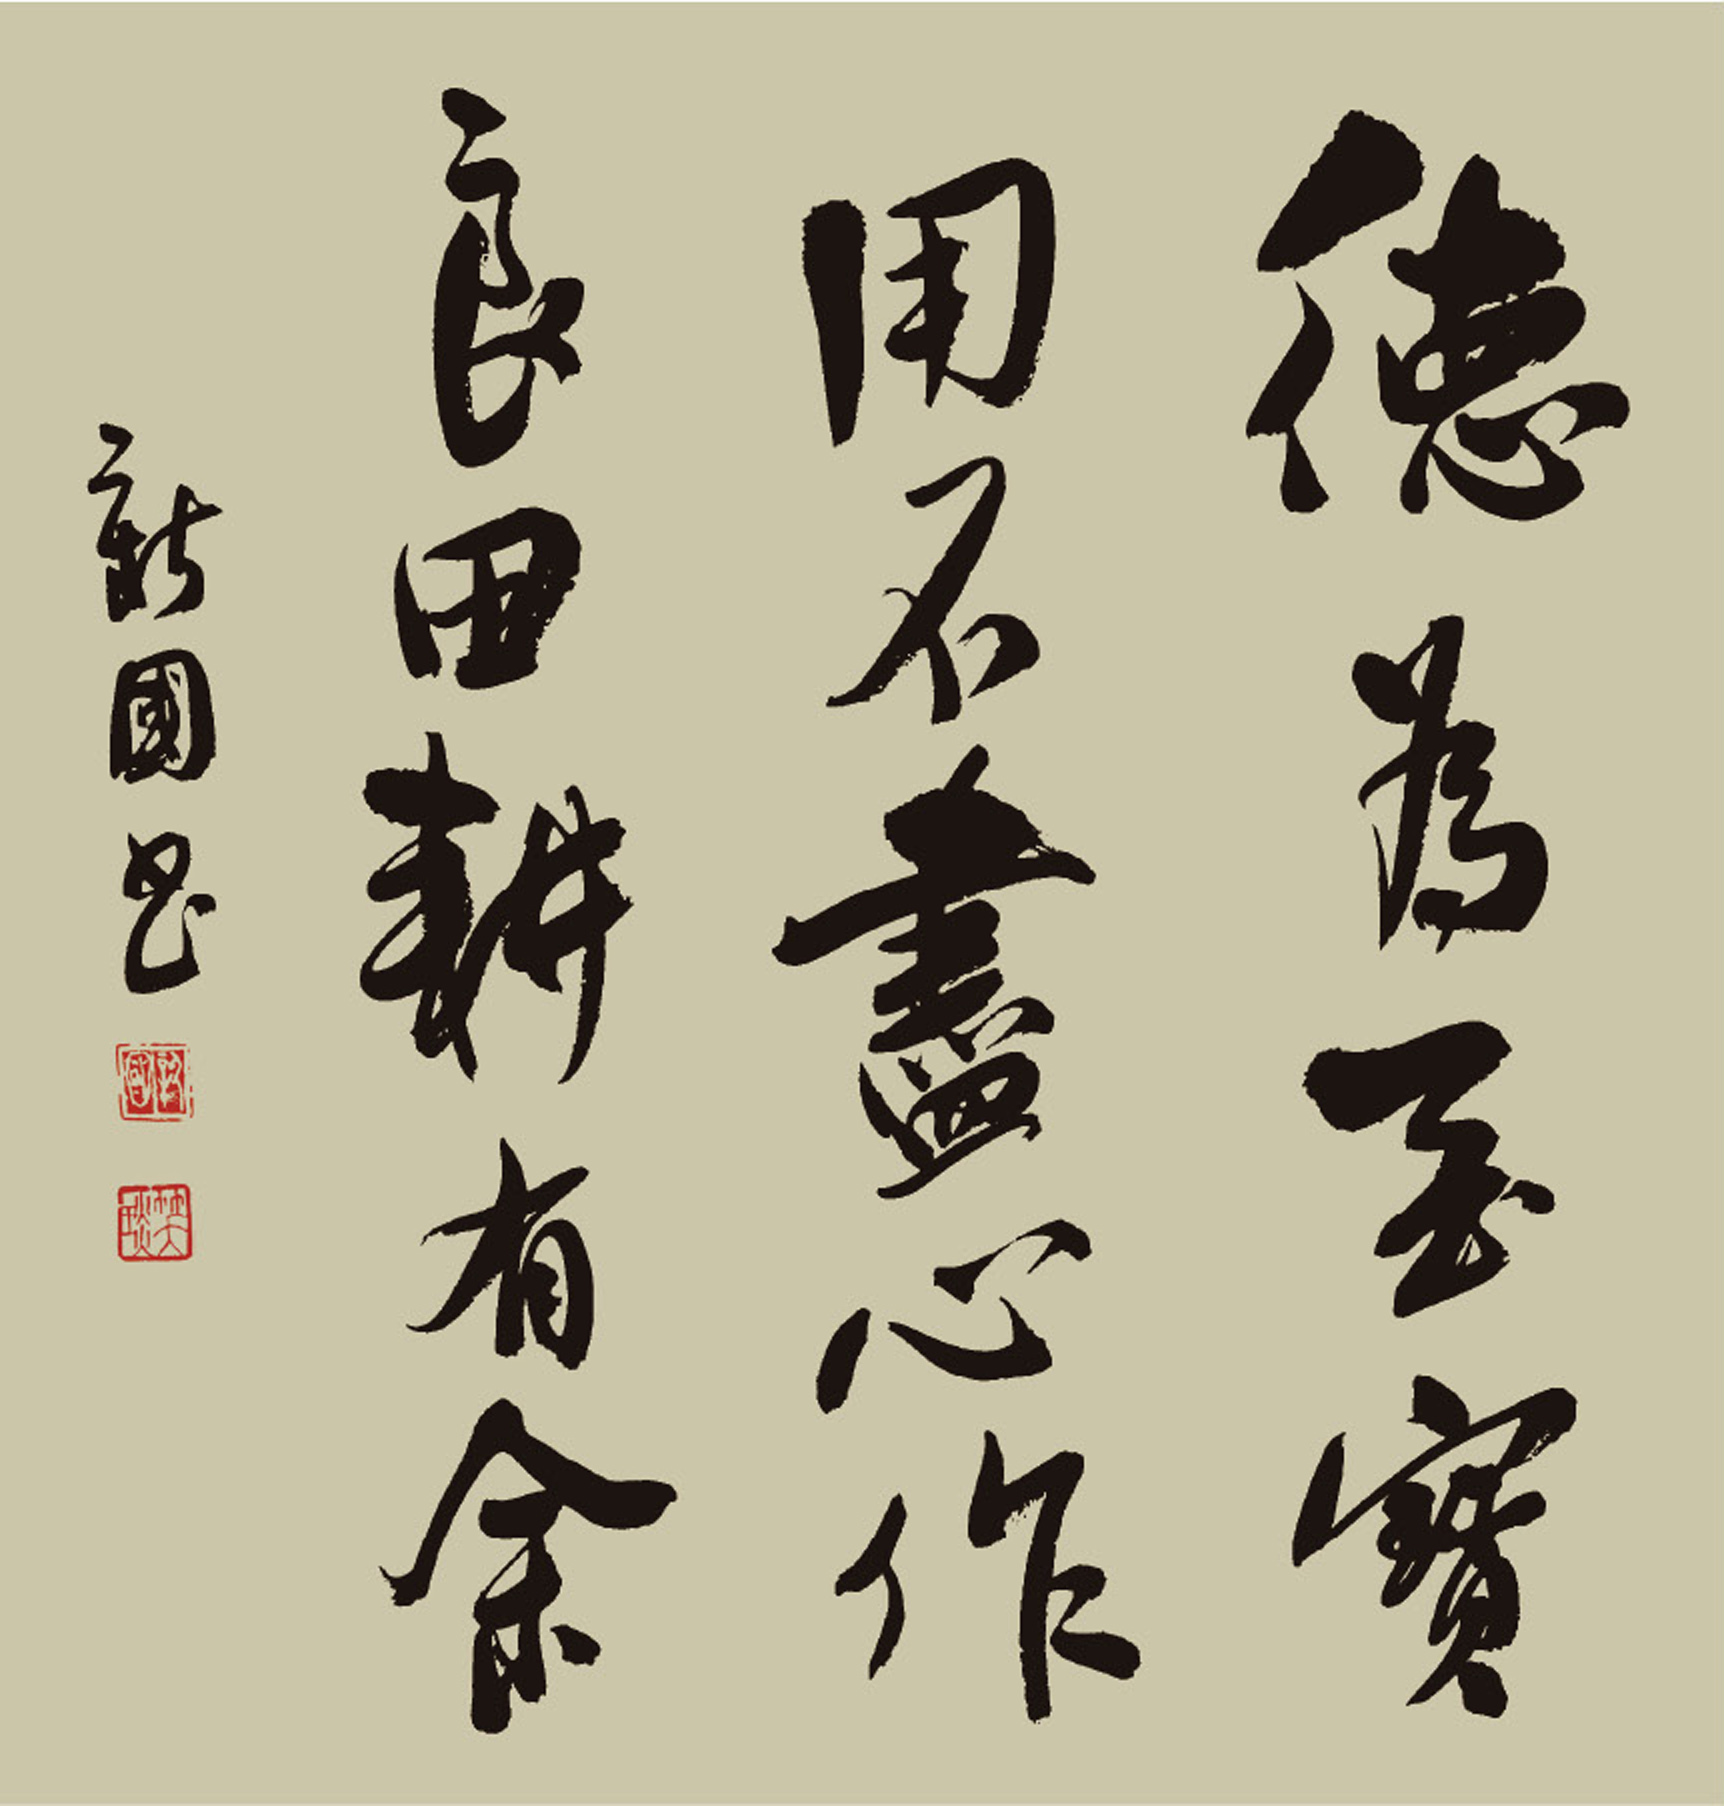 德為至寶
用不盡心作
良田耕有余
新國書